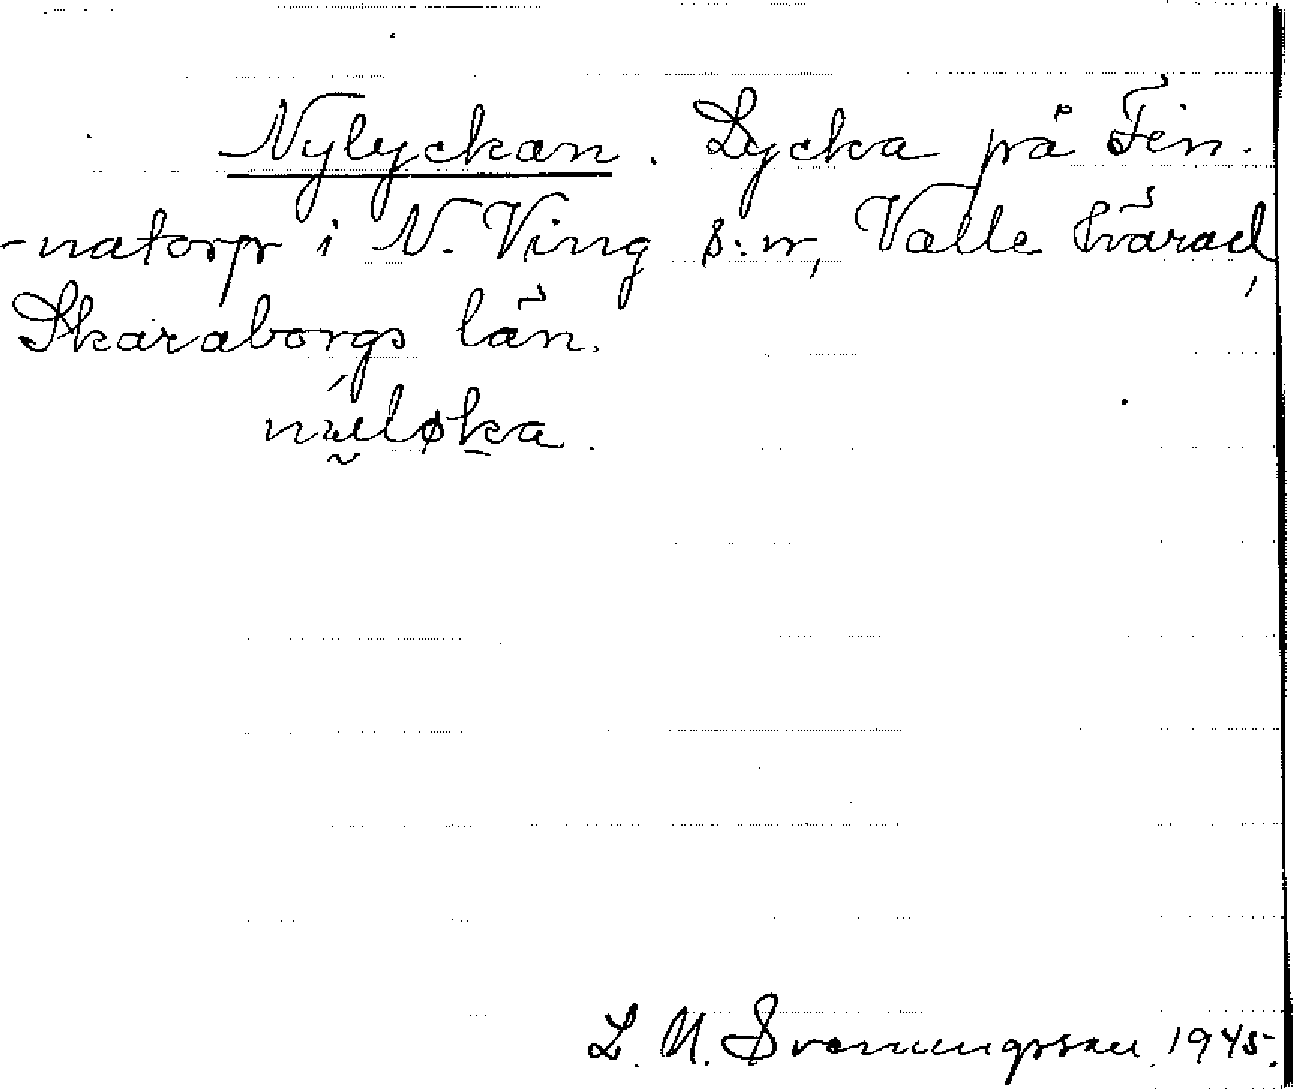 Nylyckan. Lycka på Fin-
-natorp i N. Ving s:n, Valle härad,
Skaraborgs län.
L. N. Svenungsson 1945.